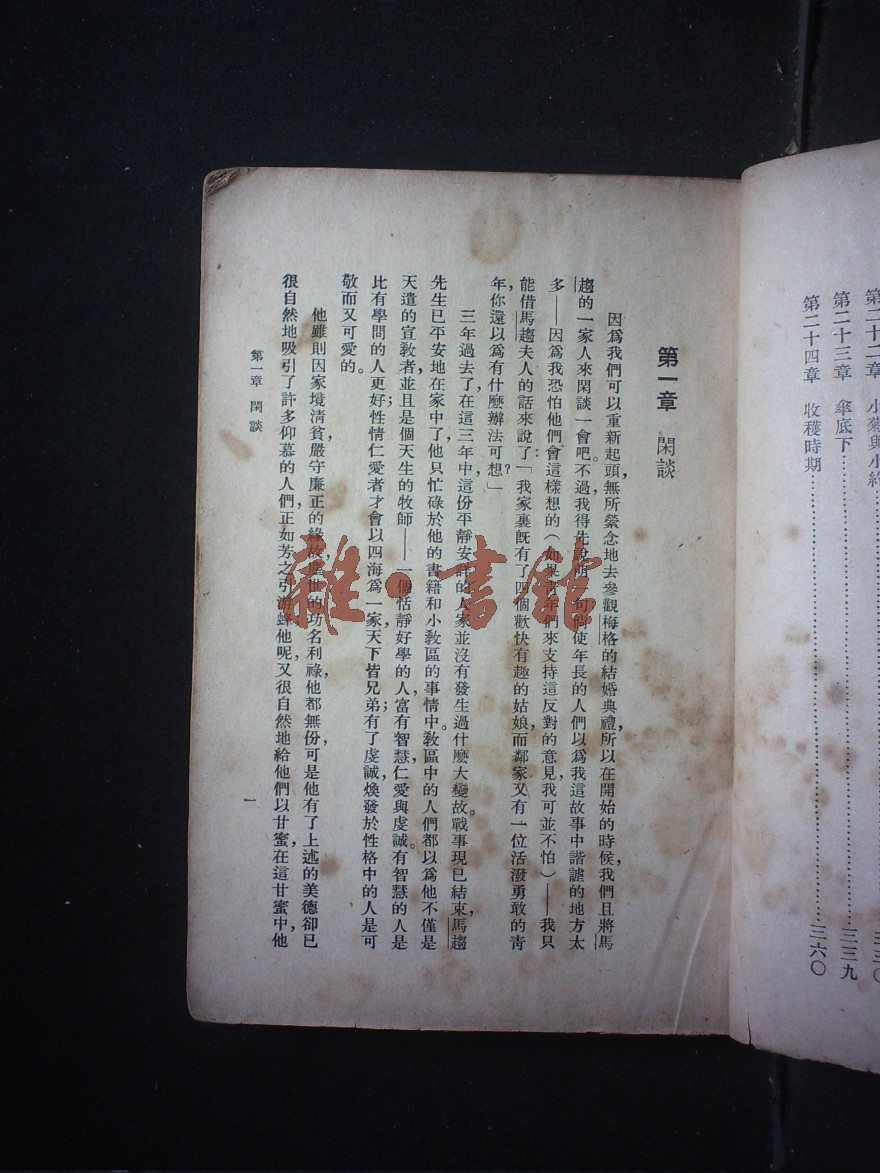 第二十三章　傘底下……………二三九
第二十四章　收穫時期……………二六〇
第一章　閑談
因爲我們可以重新起頭，無所縈念地去參觀梅格的結婚典禮，所以在開始的時候，我們且將馬
趨的一家人來閑談一會吧。不過我得先說明一句，倘使年長的人們以爲我這故事中諧謔的地方太
多——因爲我恐怕他們會這樣想的（如果靑年們來支持這反對的意見，我可並不怕）——我只
能借馬趨夫人的話來說了：「我家裏旣有了四個歡快有趣的姑娘，而鄰家又有一位活潑勇敢的靑
年，你還以爲有什麼辦法可想？」
三年過去了，在這三年中，這份平靜安詳的人家並沒有發生過什麼大變故。戰事現已結束，馬趨
先生已平安地在家中了，他只忙碌於他的書籍和小敎區的事情中。敎區中的人們都以爲他不僅是
天遣的宣敎者，並且是個天生的牧師——一個恬靜好學的人，富有智慧，仁愛與虔誠。有智慧的人是
比有學問的人更好；性情仁愛者才會以四海爲一家，天下皆兄弟；有了虔誠，煥發於性格中的人是可
敬而又可愛的。
他雖則因家境淸貧，嚴守廉正的緣故，塵世的功名利祿，他都無份，可是他有了上述的美德，卻已
很自然地吸引了許多仰慕的人們，正如芳之引游蜂，他呢，又很自然地給他們以甘蜜，在這甘蜜中，他
第一章　閑談
一
雜·書館